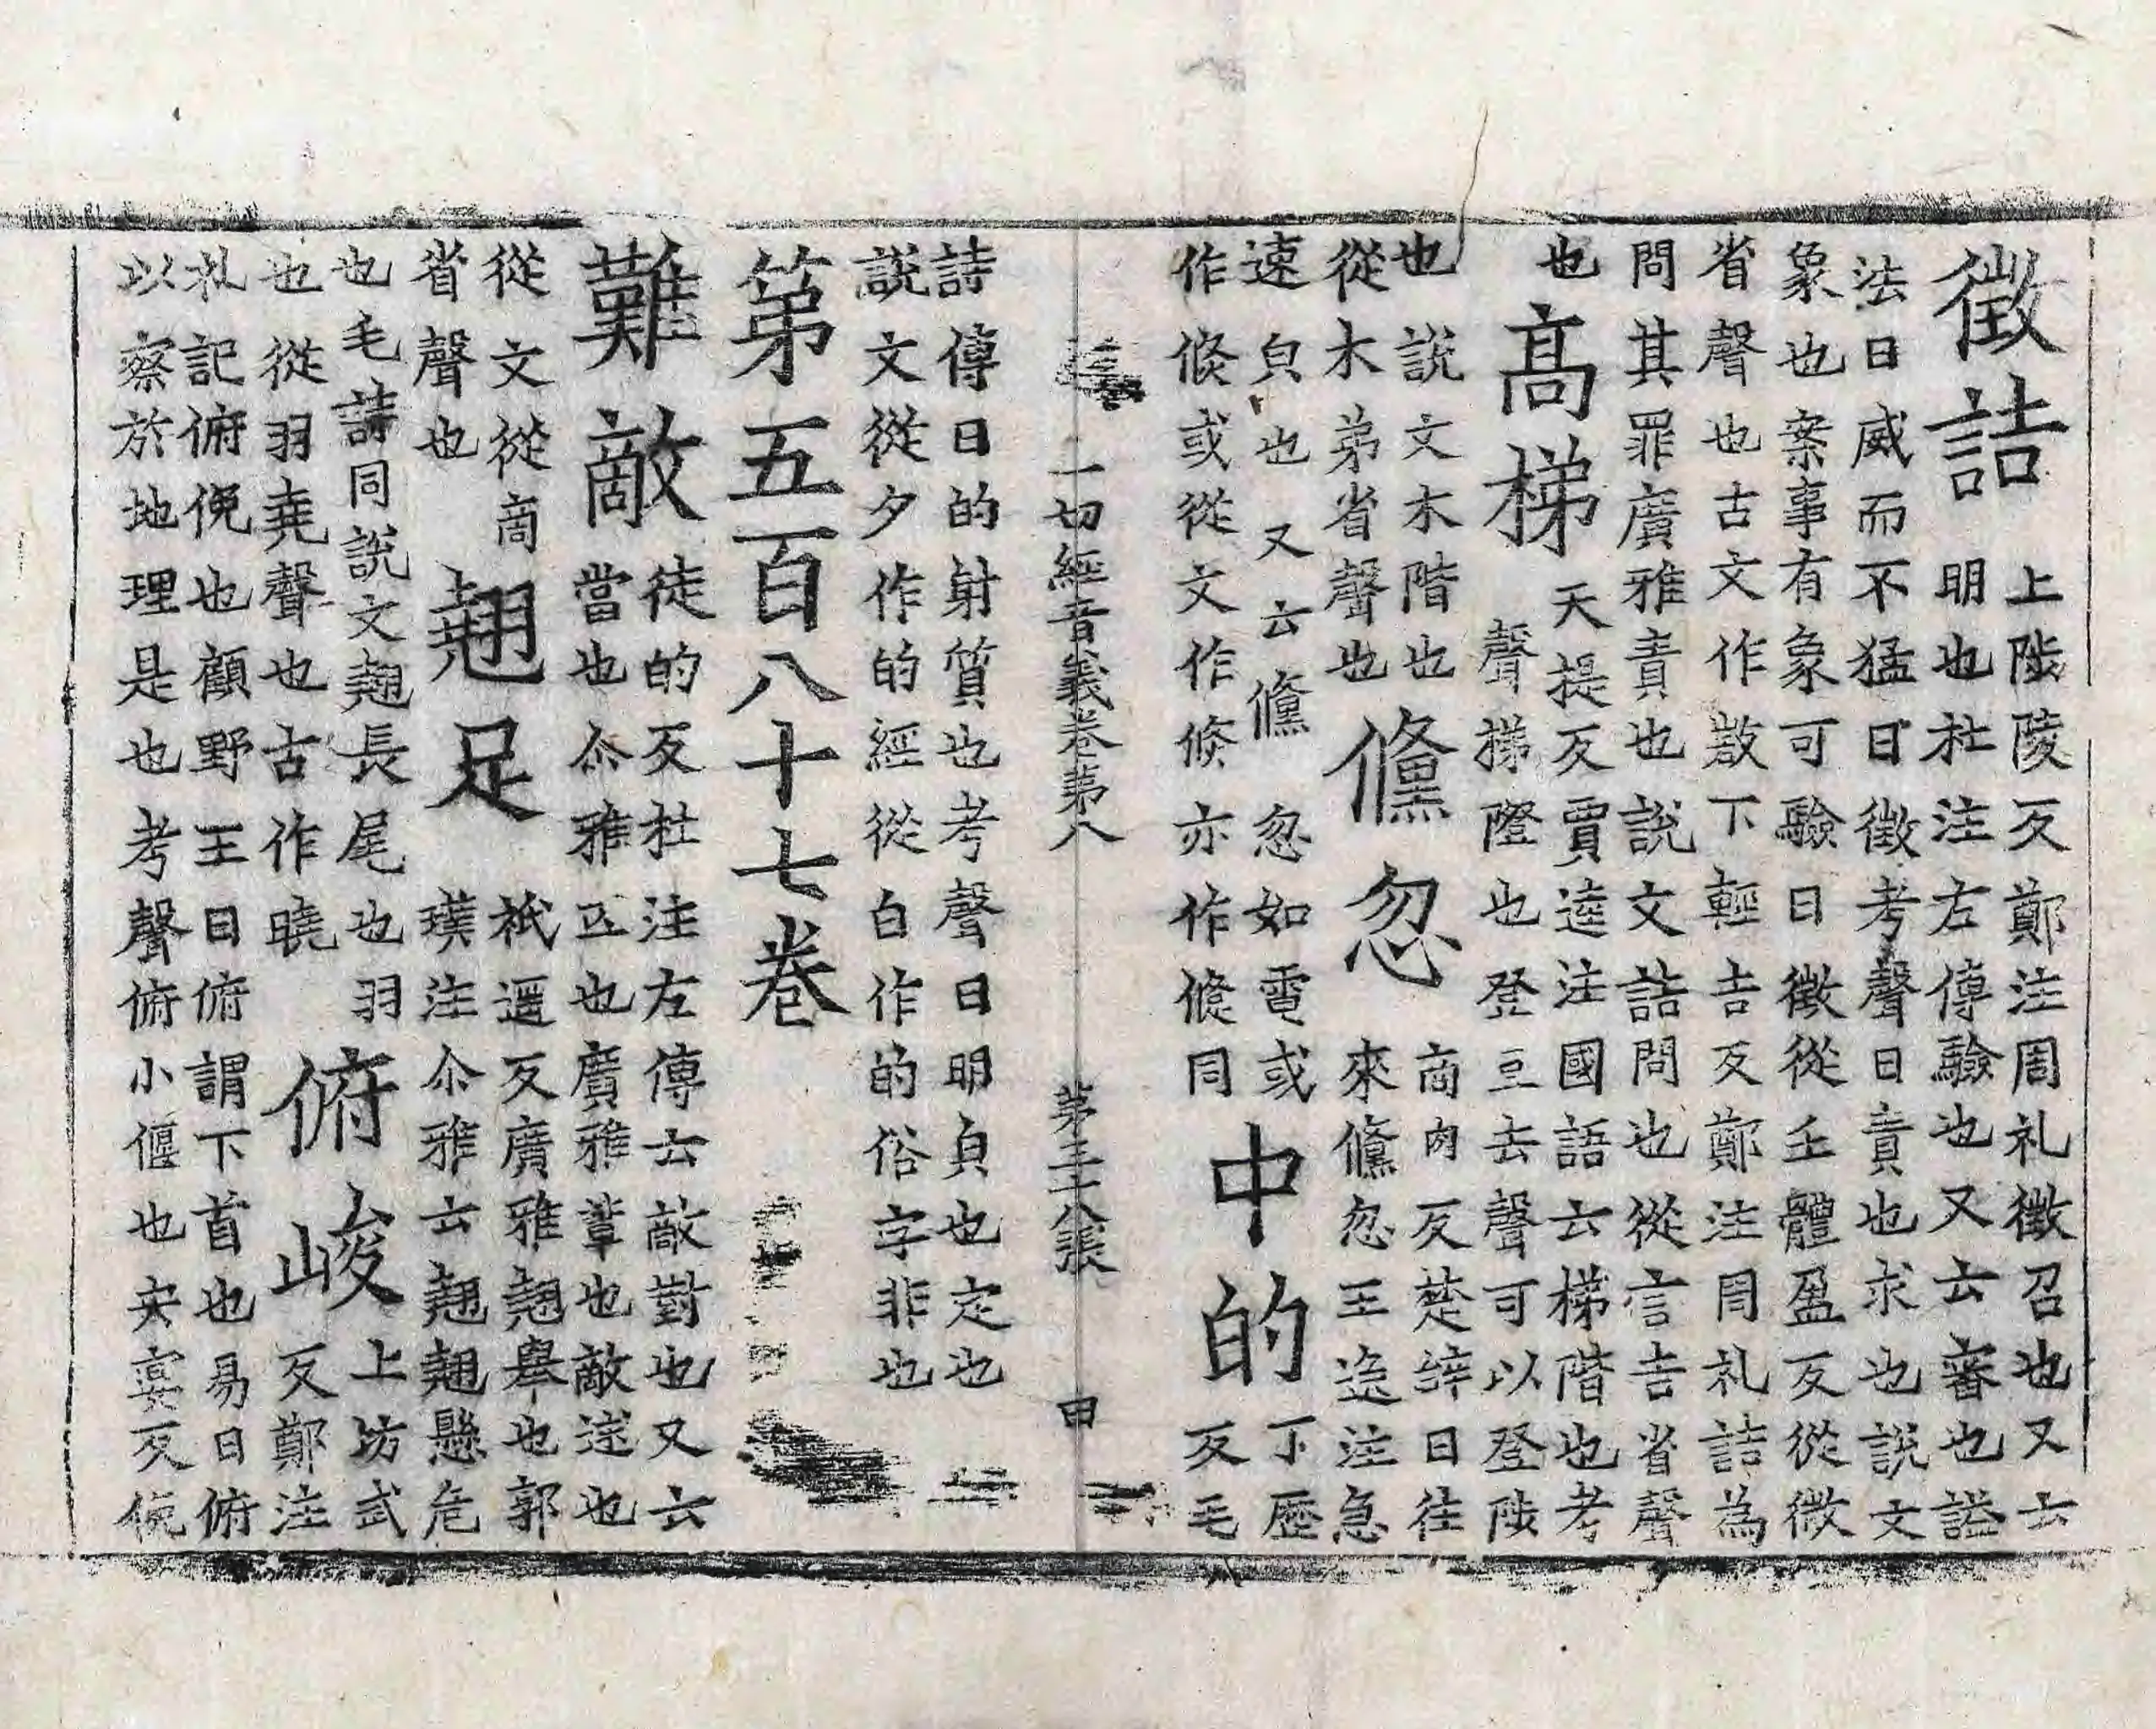 徴詰
上陟陵反鄭注周礼徴召也又云
明也杜注左傳驗也又云審也謚
法曰威而不猛曰徴考聲曰責也求也說文
象也案事有象可驗曰徴從壬體盈反從微
省聲也古文作敳下輕吉反鄭注周礼詰為
問其罪廣雅責也說文詰問也從言吉省聲
也
髙梯
天提反賈逵注國語云梯階也考
聲梯隥也登豆去聲可以登陟
也說文木階也
從木弟省聲也
儵忽
商肉反楚辞曰往
來儵忽王逸注急
速皃也又云儵忽如電或
作倐或從文作倏亦作儵同
中的
丁歷
反毛
一切經音義卷第八 第三十八張 申
詩傳曰的射質也考聲曰明皃也定也
說文從夕作的經從白作的俗字非也
第五百八十七卷
難敵
徒的反杜注左傳云敵對也又云
當也尒雅匹也廣雅輩也敵逑也
從文從啇
省聲也
翹足
祇遥反廣雅翹舉也郭
璞注尒雅云翹翹懸危
也毛詩同說文翹長尾也羽
也從羽堯聲也古作曉
俯峻
上坊武
反鄭注
礼記俯俛也顧野王曰俯謂下首也易曰俯
以察於地理是也考聲俯小偃也安寞反俛